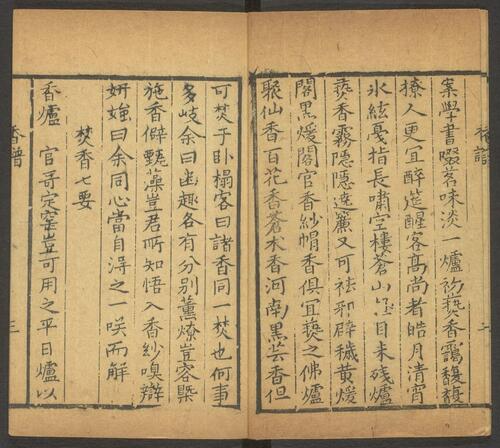 香譜
二
案學書啜茗味淡一爐初爇香靄馥馥
撩人更宜醉筵醒客髙尚者皓月清宵
氷絃戞指長嘯空樓蒼山極目未殘爐
爇香霧隱隱遶簾又可祛邪辟穢黄煖
閣黑煖閣官香紗帽香俱宜爇之佛爐
聚仙香百花香蒼术香河南黒芸香但
可焚于卧榻客曰諸香同一焚也何事
多岐余曰幽趣各有分别薰燎豈容槩
施香僻甄藻豈君所知悟入香紗嗅辯
妍媸曰余同心當自淂之一咲而解
焚香七要
香爐 官哥定窑豈可用之平日爐以
香譜
三